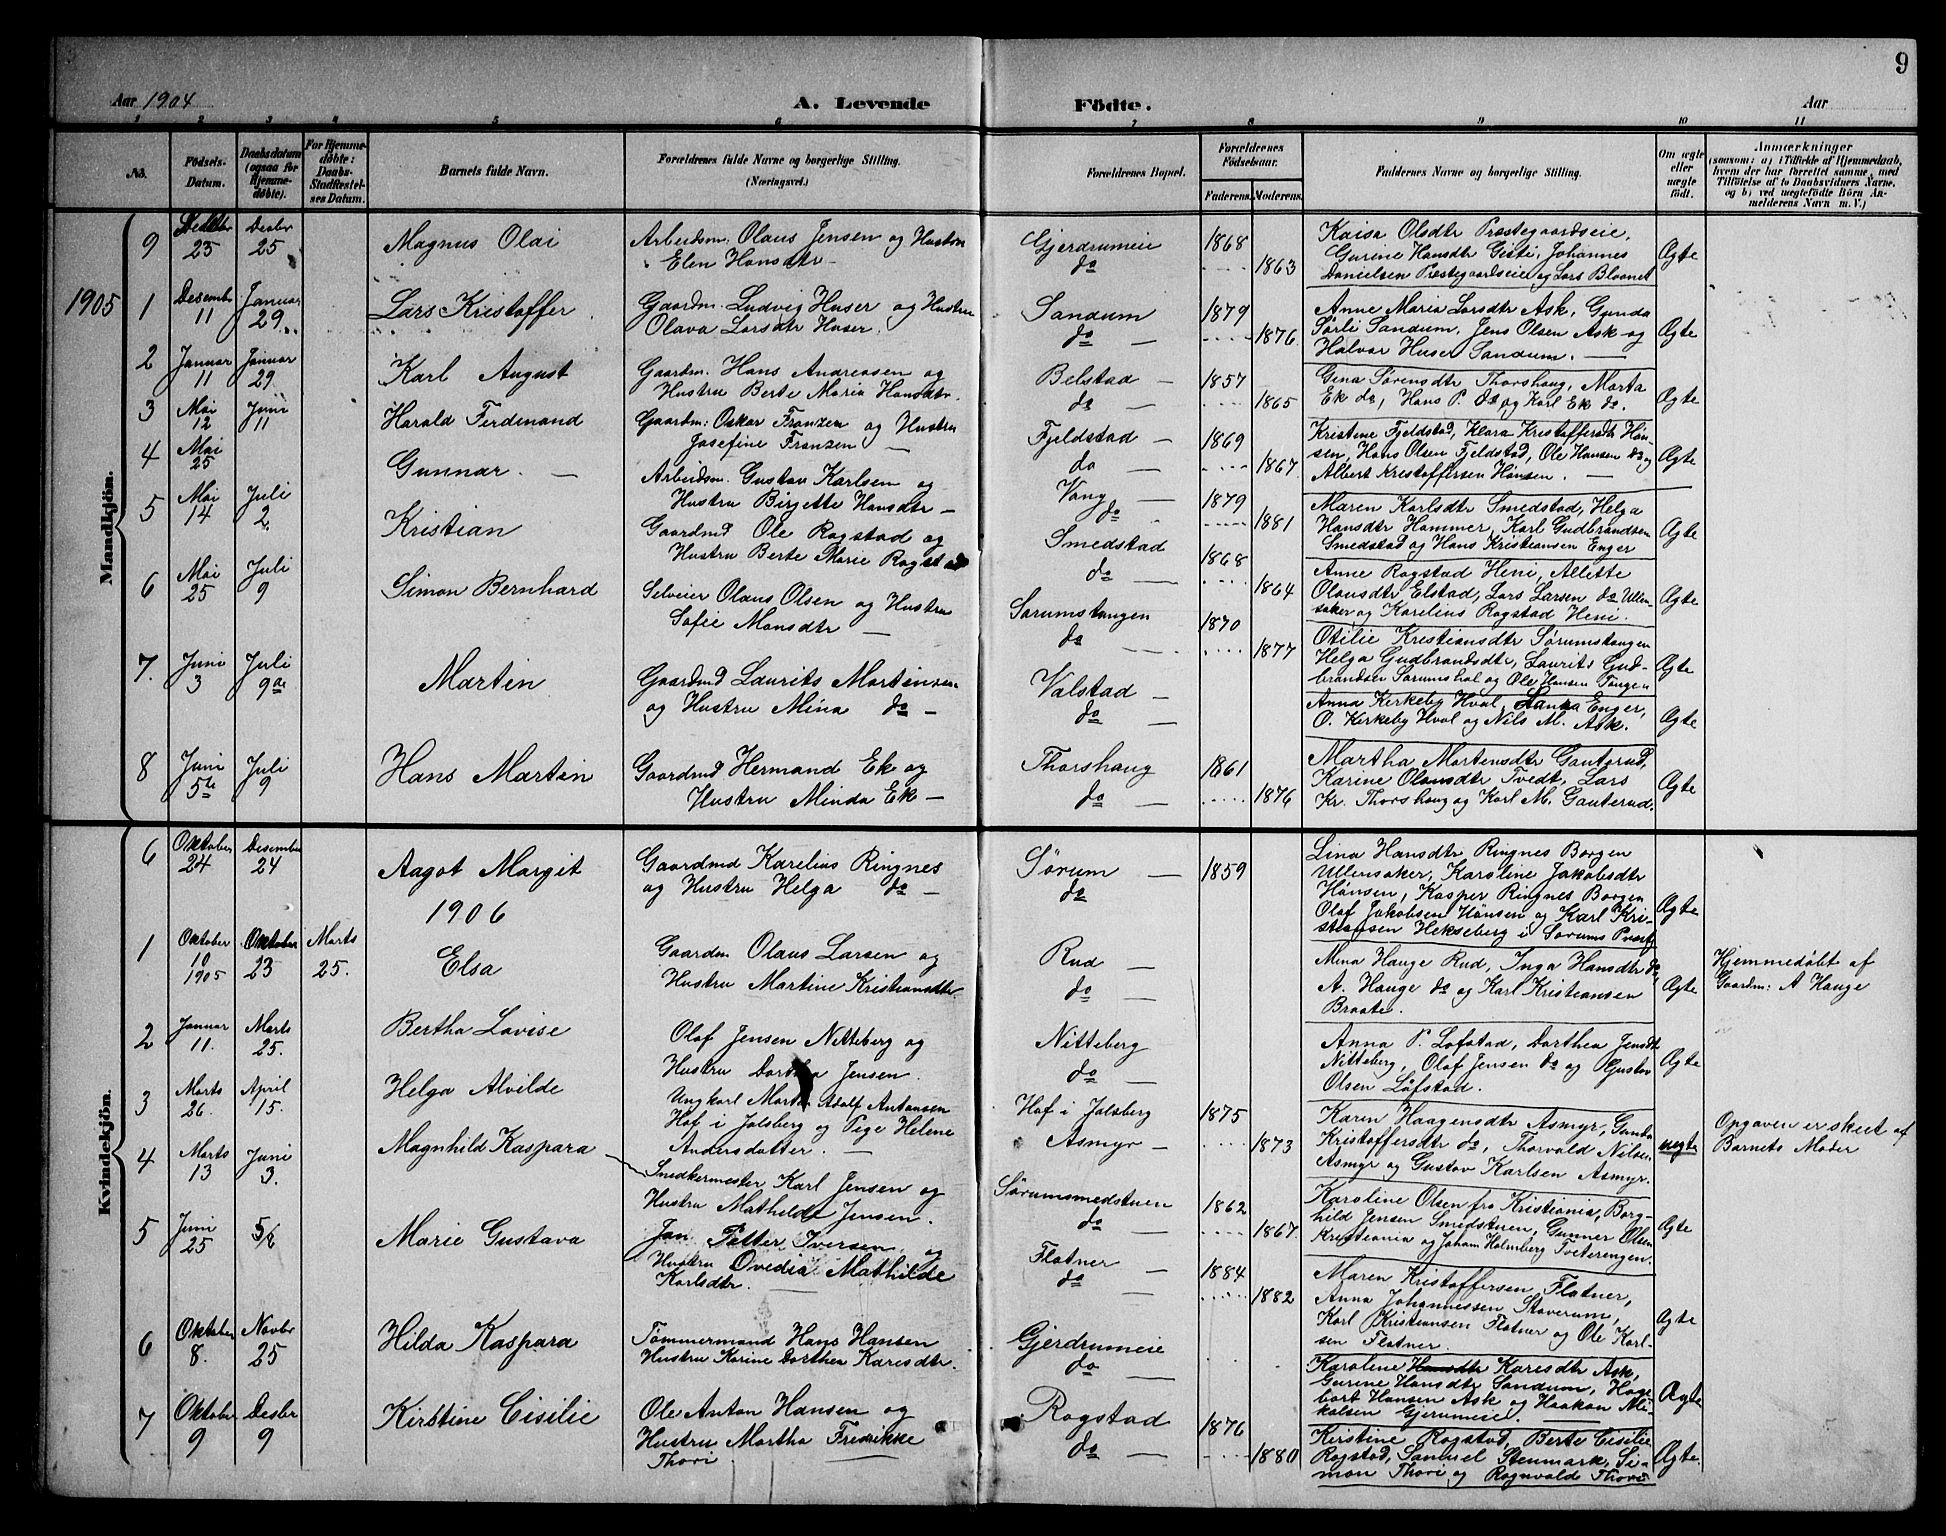 9
Aar 1904
A. Levende Födte.
Aar
1 2 3 4 5 6 7 8 9 10 11
No.
Födsels-Datum.
Daabsdatum (ogsaa for Hjemmedøbte).
For Hjemmedøbte: Daabs-Stadfæstelses Datum.
Barnets fulde Navn.
Forældrenes fulde Navne og borgerlige Stilling. (Næringsvei.)
Forældrenes Bopæl.
Forældrenes Fødselsaar.
Faderens. Moderens.
Faddernes Navne og borgerlige Stilling.
Om ægte eller uægte født.
Anmærkninger
(saasom: a) i Tilfælde af Hjemmedaab, hvem der har forrettet samme, med Tilføielse af to Daabsvidners Navne, og b) ved uægtefødte Börn Anmelderens Navn m. V.)
Mandkjön.
9 Decbr 23 Decbr 25 Magnus Olai
Arbeidsm. Olaus Jensen og Hustru
Elen Hansdtr
Gjerdrumeie
do
1868 1863
Kaisa Olsdtr Præstegaardseie,
Gurine Hansdtr Gisti, Johannes
Danielsen Præstegaardseie og Lars
Ægte
1905
1 Desembr 11 Januar 29 Lars Kristoffer
Gaardm. Ludvig Huser og Hustru
Olava Larsdtr Huser.
Sandum
do
1879 1876
Anne Maria Larsdtr Ask, Gunda
Sørli Sandum, Jens Olsen Ask og
Halvor Huser Sandum.
Ægte
2 Januar 11 Januar 29 Karl August
Gaardm. Hans Andreasen og
Hustru Berte Maria Hansdtr.
Belstad
do
1857 1865
Gina Sørensdtr Thorshaug, Marta
Ek do, Hans P. do og Karl Ek do.
Ægte
3 Mai 12 Juni 11 Harald Ferdinand
Gaardm: Oskar Franzen og Hustru
Josefine Franzen
Fjeldstad
do
1869 1867
Kristine Fjeldstad, Klara Kristoffersdtr Høn-
sen, Hans Olsen Fjeldstad, Ole Hansen do og
Albert Kristoffersen Hønsen.
Ægte
4 Mai 25 Gunnar.
Arbeidsm. Gustav Karlsen og
Hustru Birgette Hansdtr
Vang
do
1879 1881
Maren Karlsdtr Smedstad, Helga
Hansdtr Hammer, Karl Gudbrandsen
Smedstad og Hans Kristiansen Enger
Ægte
5 Mai 14 Juli 2 Kristian
Gaardmd Ole Rogstad og
Hustru Berte Marie Rogstad
Smedstad
do
1868 1864
Anne Rogstad Heni, Allette
Olausdtr Elstad, Lars Larsen do Ullen-
saker og Karelius Rogstad Heni.
Ægte
6 Mai 25 Juli 9 Simon Bernhard
Selveier Olaus Olsen og Hustru
Sofie Monsdtr
Sørumstangen
do
1870 1877
Otilie Kristiansdtr Sørumstangen
Helga Gudbrandsdtr, Laurits Gud-
brandsen Sørumshol og Ole Hansen Tangen
Ægte
7. Juni 3 Juli 9de Martin
Gaardmd Laurits Martinsen
og Hustru Mina do
Valstad
do
Anna Kirkeby Hval, Enger,
O. Kirkeby Hval og Nils M. Ask.
Ægte
8 Juni 5te Juli 9 Hans Martin
Gaardmd Hermand Ek og
Hustru Minda Ek
Thorshaug
do
1861 1876
Martha Mortensdtr Gauterud,
Karine Olausdtr Tvedt, Lars
Kr. Thorshaug og Karl M. Gauterud.
Ægte
Kvindekjön.
6 Oktober 24 Desember 24 Aagot Margit
Gaardmd Karelius Ringnes
og Hustru Helga do
Sørum
do
1859
Lina Hansdtr Ringnes Borgen
Ullensaker, Karoline Jakobsdtr
Hønsen, Kasper Ringnes Borgen
Olaf Jakobsen Hønsen og Karl Kri-
stiansen Hekseberg i Sørums Præstg
Ægte
1906
1 Oktober 10 1905 Oktober 23 Marts 25. Elsa
Gaardm Olaus Larsen og
Hustru Martine Kristiansdtr.
Rud
do
Mina Hauge Rud, Inga Hansdtr do,
A. Hauge do og Karl Kristiansen
Braate.
Ægte
Hjemmedøbt af
Gaardm: A Hauge
2 Januar 11. Marts 25. Bertha Lovise
Olaf Jensen Nitteberg og
Hustru Dorthea Jensen.
Nitteberg
do
Anna P. Løfstad, Dorthea Jensdtr
Nitteberg, Olaf Jensen do og Gustav
Olsen Løfstad.
Ægte
3 Marts 26. April 15. Helga Alvilde
Ungkarl Martin Adolf Antonsen
Hof i Jalsberg og Pige Helene
Andersdatter.
Hof i Jalsberg
Asmyr
1875 1873
Karen Haagensdtr Asmyr, Gunda
Kristoffersdtr do, Thorvald Nilsen
Asmyr og Gustav Karlsen Asmyr.
uegte
Opgaven er skeet af
Barnets Moder
4 Marts 13 Juni 3. Magnhild Kaspara
Snedkermester Karl Jensen og
Hustru Mathilde Jensen.
Sørumsmedstuen
do
1862 1867
Karoline Olsen fra Kristiania, Borg-
hild Jensen Smedstuen, Gunner Olsen
Kristiania og Johan Holmberg Tveterengen.
Ægte
5 Juni 25 Marie Gustava
Jan Petter Iversen og
Hustru Ovedia Mathilde
Karlsdtr.
Flatner
do
1884 1882
Maren Kristoffersen Flatner,
Anna Johannessen Staverum,
Karl Kristiansen Flatner og Ole Karl-
sen Flatner.
Ægte
6 Oktober 8. Novbr 25 Hilda Kaspara
Tømmermand Hans Hansen
Hustru Karine Dorthea Karisdtr.
Gjerdrumeie
do
Karoline Karisdtr Ask,
Gurine Hansdtr Sandum, Hage-
bart Hansen Ask og Haakon Mi-
kalsen Gjerumeie.
Ægte
7 Oktober 9 Desbr 9 Kirstine Cisilie
Ole Anton Hansen og
Hustru Martha Fredrikke
Thori.
Rogstad
do
1876 1880
Kirstine Rogstad, Berte Cisilie
Rogstad, Samuel Stenmark, Si-
mon Thori og Ragnvald Thori
Ægte.